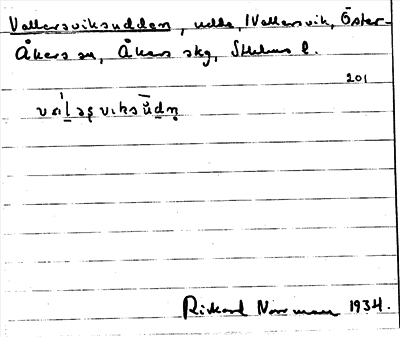 Vallersviksudden, udde, Vallersvik, Öster-
Åkers sn, Åkers skg, Sthlms l.
201
Rickard Norrman 1934.